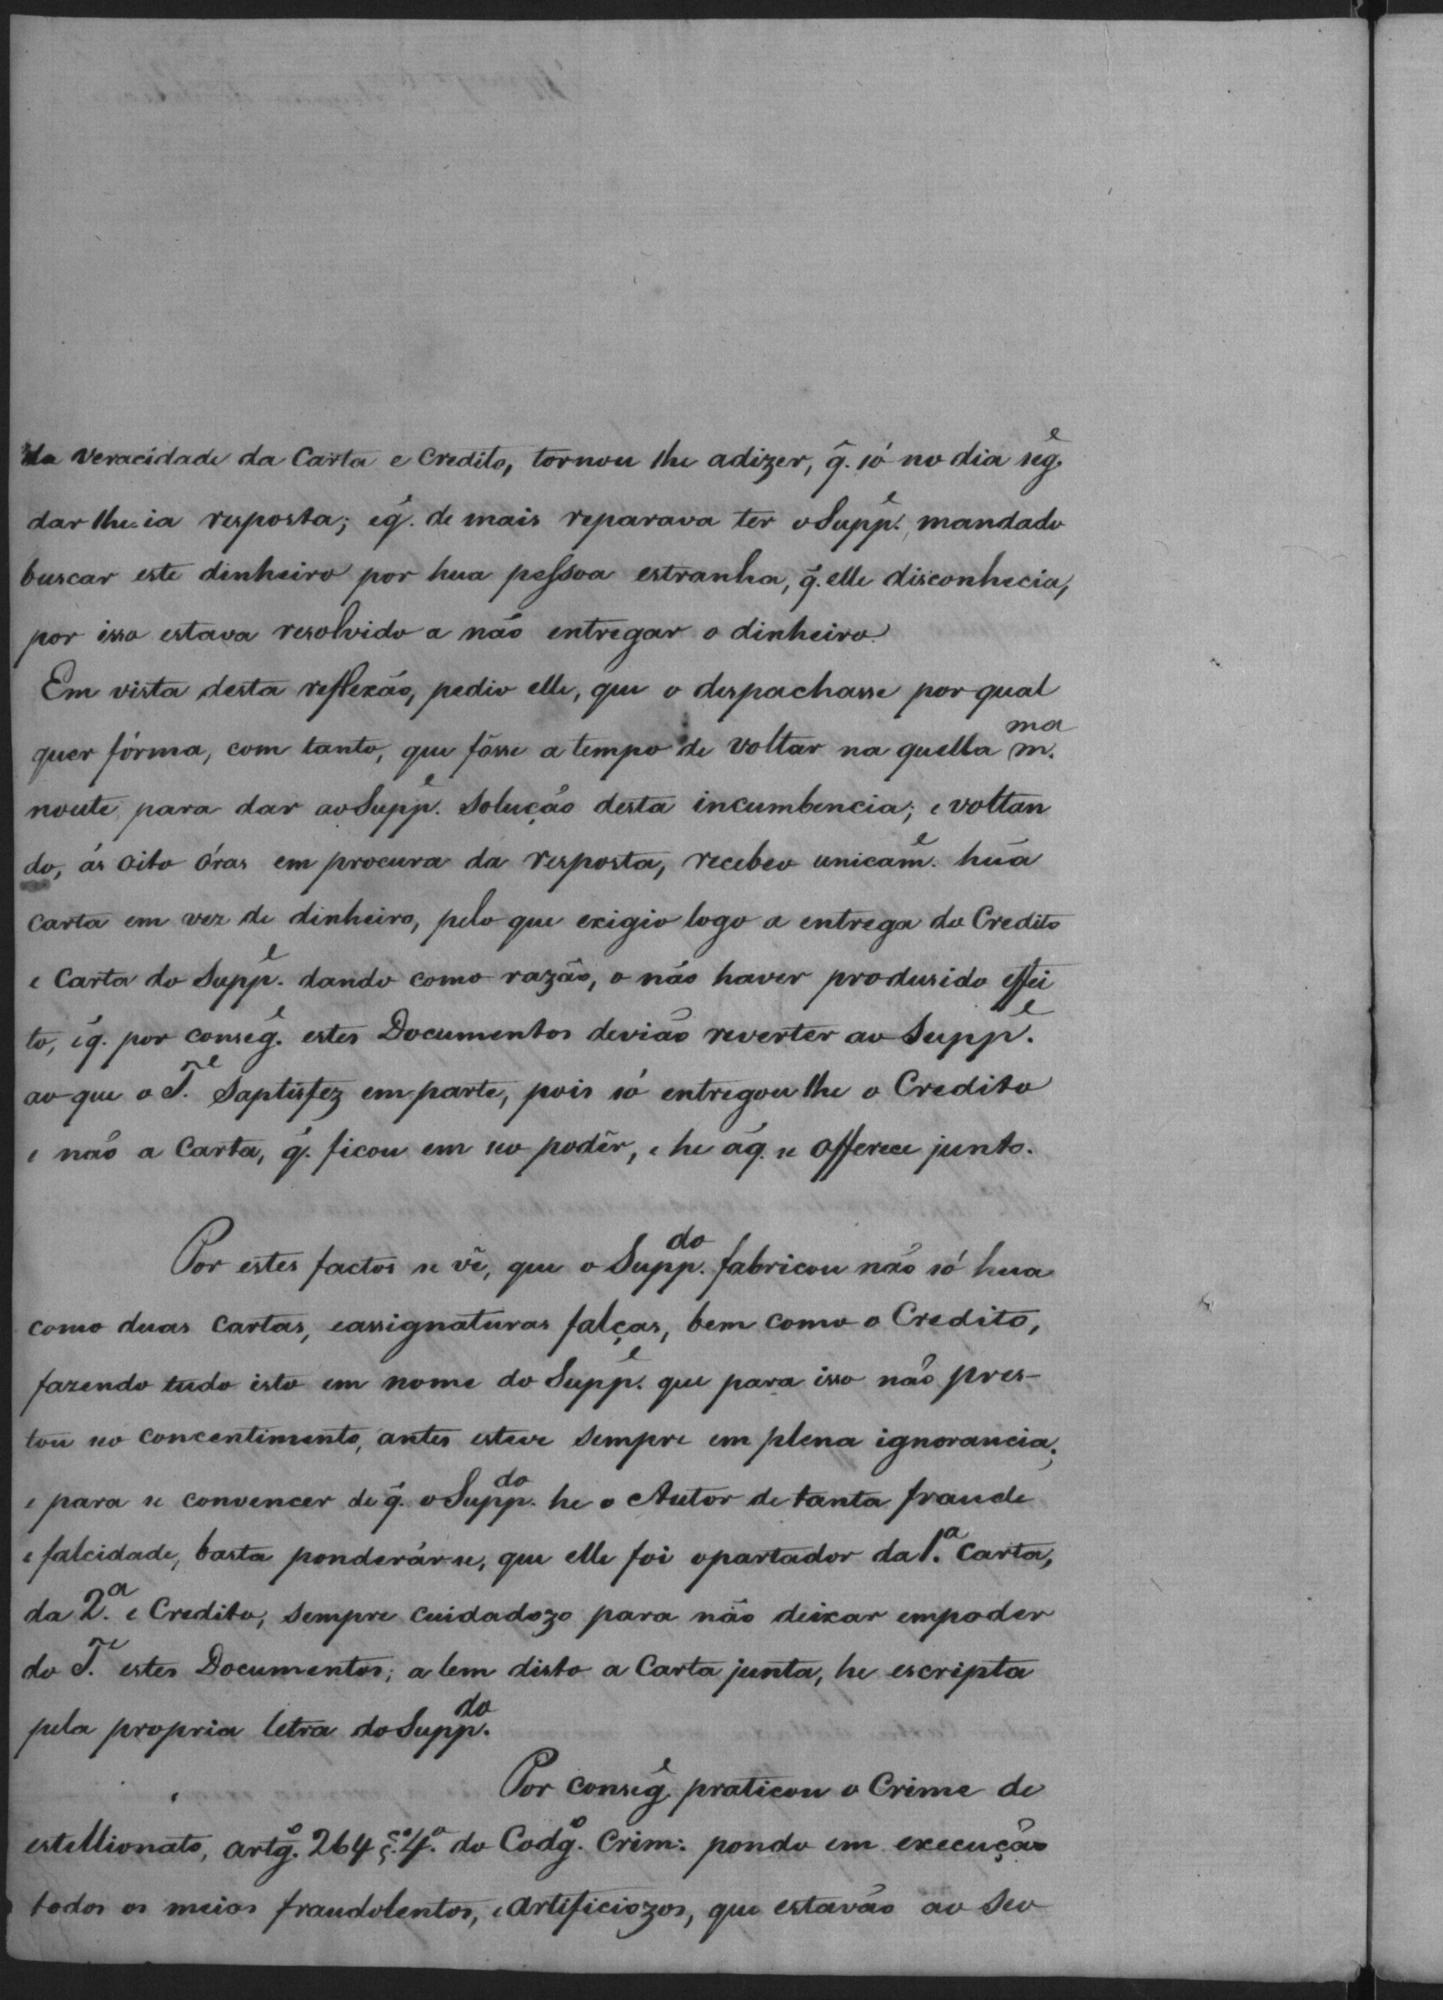 da veracidade da Carta e Credito, tornou lhe adizer, q̃. só no dia seg.^e
dar lhe-ia resposta; eq̃. de mais reparava ter o Supp.^e mandado
buscar este dinheiro por hua pessoa estranha, q̃. elle disconhecia,
por isso estava resolvido a não entregar o dinheiro.
Em vista desta reflexão, pedio elle, que o despachasse por qual
quer fórma, com tanto, que fôsse a tempo de voltar na quella m.^ma
noute, para dar ao Supp.^e Solução desta incumbencia; e voltan
do, ás oito óras em procura da resposta, recebeo unicam.^e hũa
Carta em vez de dinheiro, pelo que exigio logo a entrega do Credito
e Carta do Supp.^e dando como razão, o não haver produsido effei
to, eq̃. por conseg.^e estes Documentos devião reverter ao Supp.^e
ao que o T.^e Saptisfez em parte, pois só entregou lhe o Credito
e não a Carta, q̃. ficou em seo podêr, e he áq. se offerece junto.
Por estes factos se vê, que o Supp.^do fabricou não só hua
como duas Cartas, eassignaturas falças, bem como o Credito,
fazendo tudo isto em nome do Supp.^e que para isso não pres-
tou seo concentimento, antes esteve sempre em plena ignorancia;
e para se convencer de q̃. o Supp.^do he o Autor de tanta fraude
e falcidade, basta ponderár-se, que elle foi opartador da 1.ª Carta,
da 2.ª e Credito, sempre cuidadozo para não deixar empoder
do T.^e estes Documentos; a lem disto a Carta junta, he escripta
pela propria letra do Supp.^do
Por conseg.^e praticou o Crime de
estellionato, artg.º 264 §.º 4.º do Codg.º Crim: pondo em execução
todos os meios fraudolentos, e artificiozos, que estavão ao seo